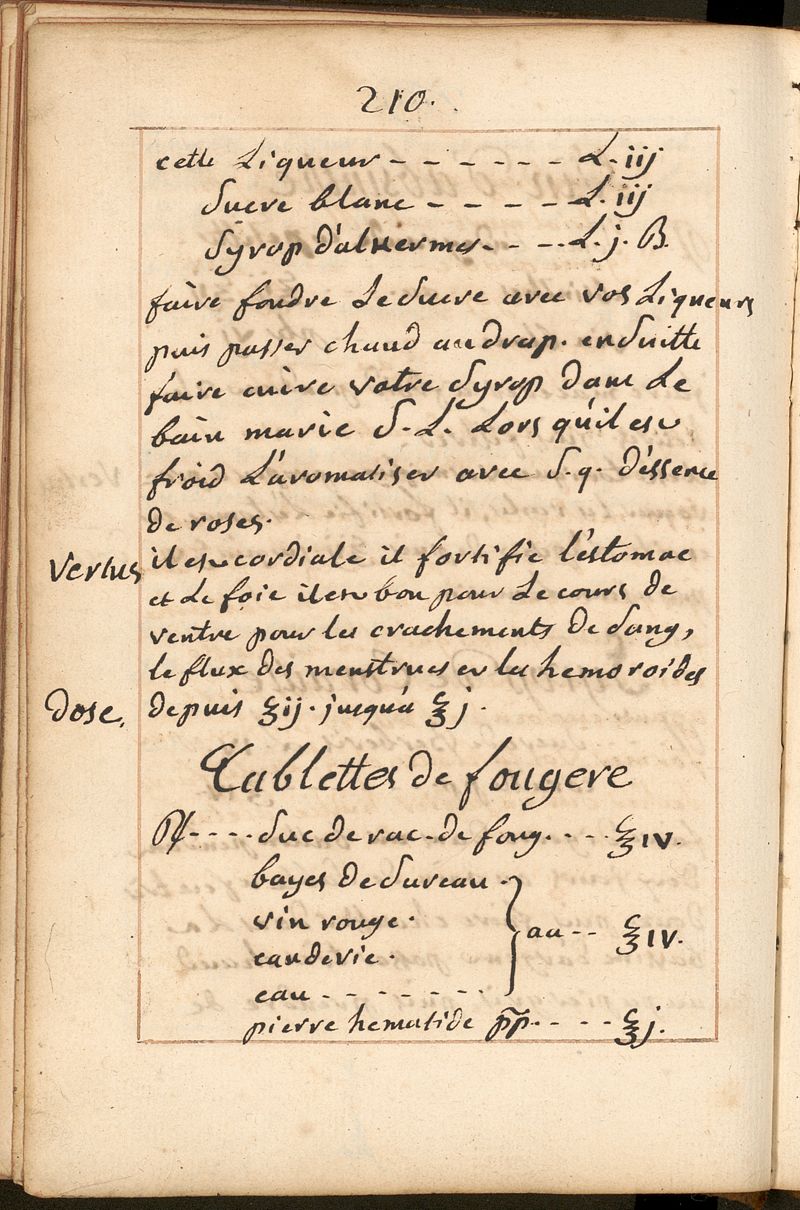 210.
cette Liqueur - - - - - - L. iij
sucre blanc - - - - L. iij
syrop d'alkermes. - - - L. j. ß.
faire fondre Le sucre avec vos Liqueurs
puis passer chaud au drap. ensuitte
faire cuire votre syrop dans Le
bain marie S. L. Lors qu'il est
froid L'aromatiser avec S. q. d'éssence
de roses.
Vertus il est cordiale il fortifie l'éstomac
et Le foie il est bon pour Le cours de
ventre pour les crachements de sang,
le flux des menstrues et les hemoroides
dose. depuis ℥ij. jusqu'a ℥j.
Tablettes de fougere
♃ - - - - suc de rac. de foug. - - - ℥IV.
bayes de sureau -
vin rouge.
eau de vie.
eau - - - - - - - -
aa - - ℥IV.
pierre hematide pp. - - - - ℥j.